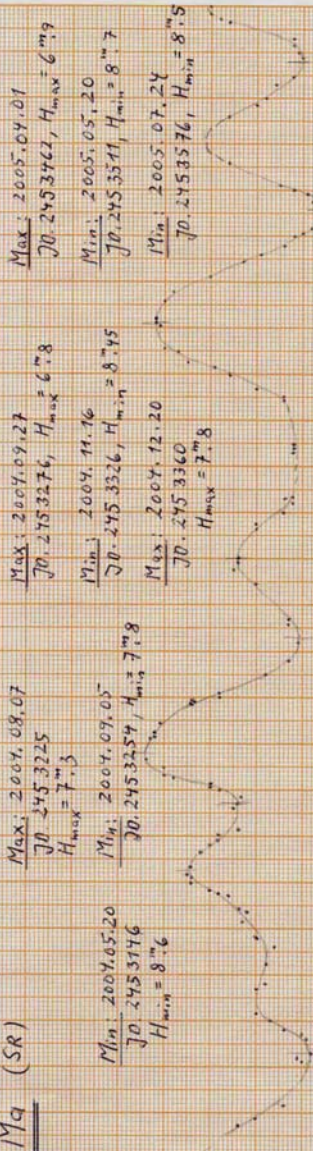 Ma (SR)
Min: 2004.05.20
JD. 2453146
Hmin = 8ᵐ.6
Max: 2004.08.07
JD. 2453225
Hmax = 7ᵐ.3
Min: 2004.09.05
JD. 2453254, Hmin = 7ᵐ.8
Max: 2004.09.27
JD. 2453276, Hmax = 6ᵐ.8
Min: 2004.11.16
JD. 2453326, Hmin = 8ᵐ.45
Max: 2004.12.20
JD. 2453360
Hmax = 7ᵐ.8
Max: 2005.04.01
JD. 2453462, Hmax = 6ᵐ.9
Min: 2005.05.20
JD. 2453511, Hmin = 8ᵐ.7
Min: 2005.07.24
JD. 2453576, Hmin = 8ᵐ.5